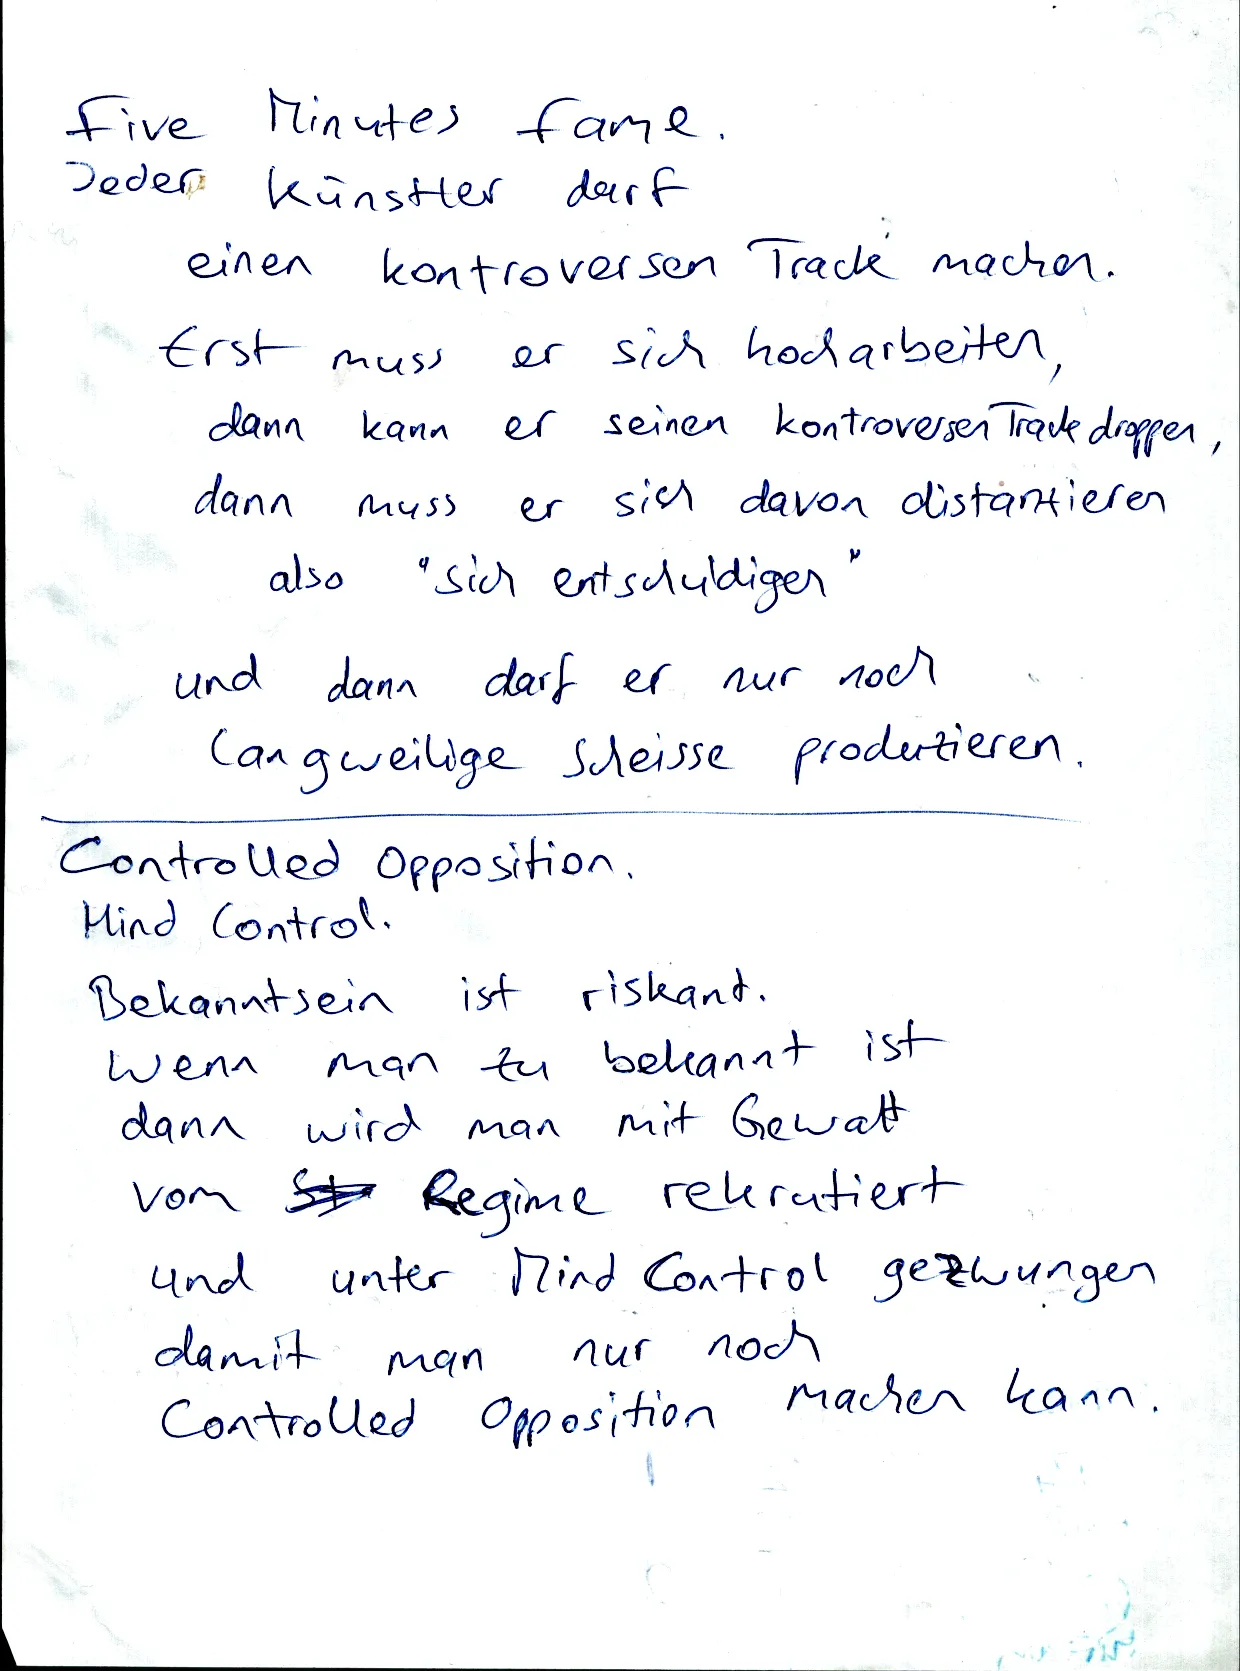 Five Minutes Fame.
Jeder Künstler darf
einen kontroversen Track machen.
Erst muss er sich hocharbeiten,
dann kann er seinen kontroversen Track droppen,
dann muss er sich davon distanzieren
also "sich entschuldigen"
und dann darf er nur noch
langweilige Scheisse produzieren.
Controlled Opposition.
Mind Control.
Bekanntsein ist riskant.
Wenn man zu bekannt ist
dann wird man mit Gewalt
vom Regime rekrutiert
und unter Mind Control gezwungen
damit man nur noch
Controlled Opposition machen kann.